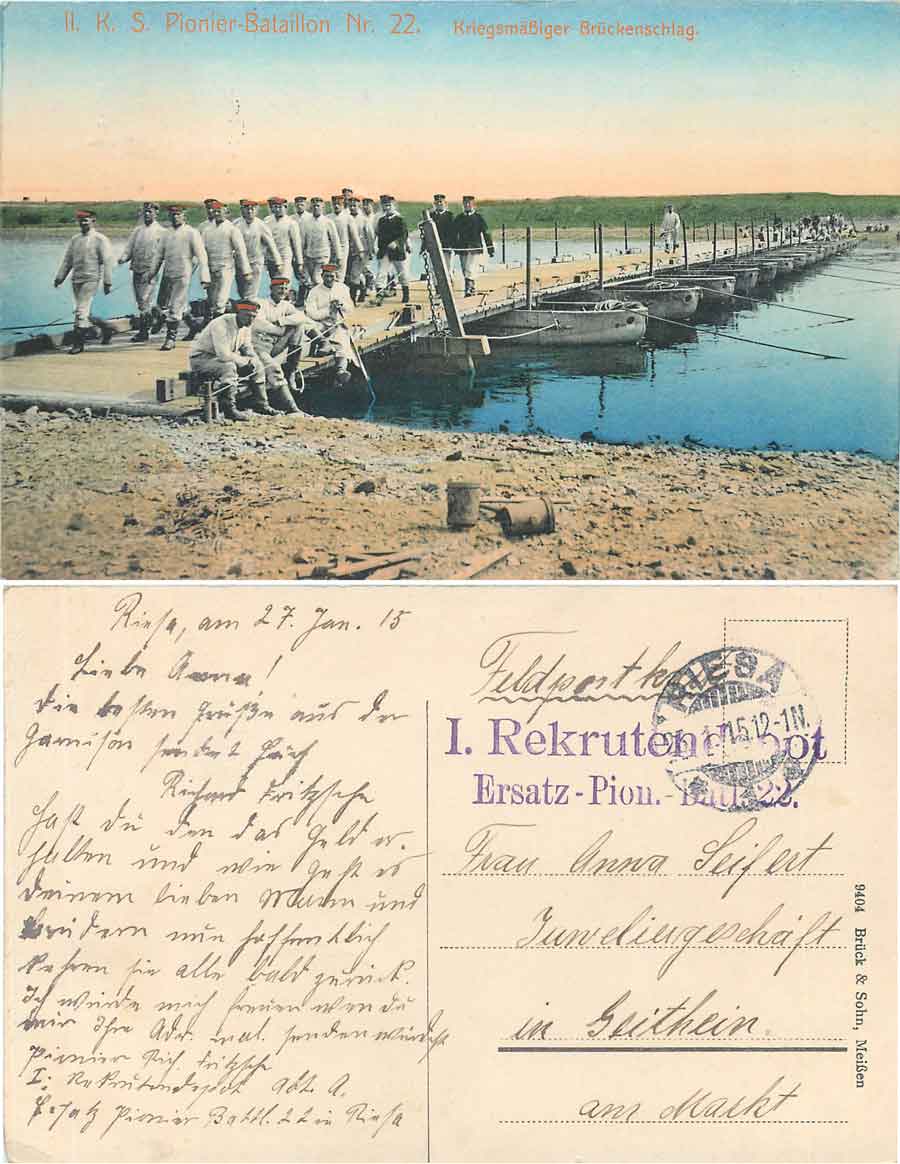 II. K. S. Pionier-Bataillon Nr. 22. Kriegsmäßiger Brückenschlag.
Riesa, am 27. Jan. 15
Liebe Anna!
Die besten Grüße aus der
Garnison sendet Euch
Richard Fritzsche
Hast Du den das Geld er-
halten und wie geht es
Deinem lieben Mann und
Brüdern nun hoffentlich
kehren sie alle bald zurück.
Ich würde mich freuen wen du
mir Ihre Adr. mal senden würdest
Pionier Rich. Fritzsche
I. Rekrutendepot Abt. A.
Ersatz Pionier Battl. 22 in Riesa
Feldpostk
RIESA
1.15.12-1N.
I. Rekrutendepot
Ersatz-Pion.-Batl. 22.
Frau Anna Seifert
Juweliergeschäft
in Geithein.
am Markt
9404 Brück & Sohn, Meißen